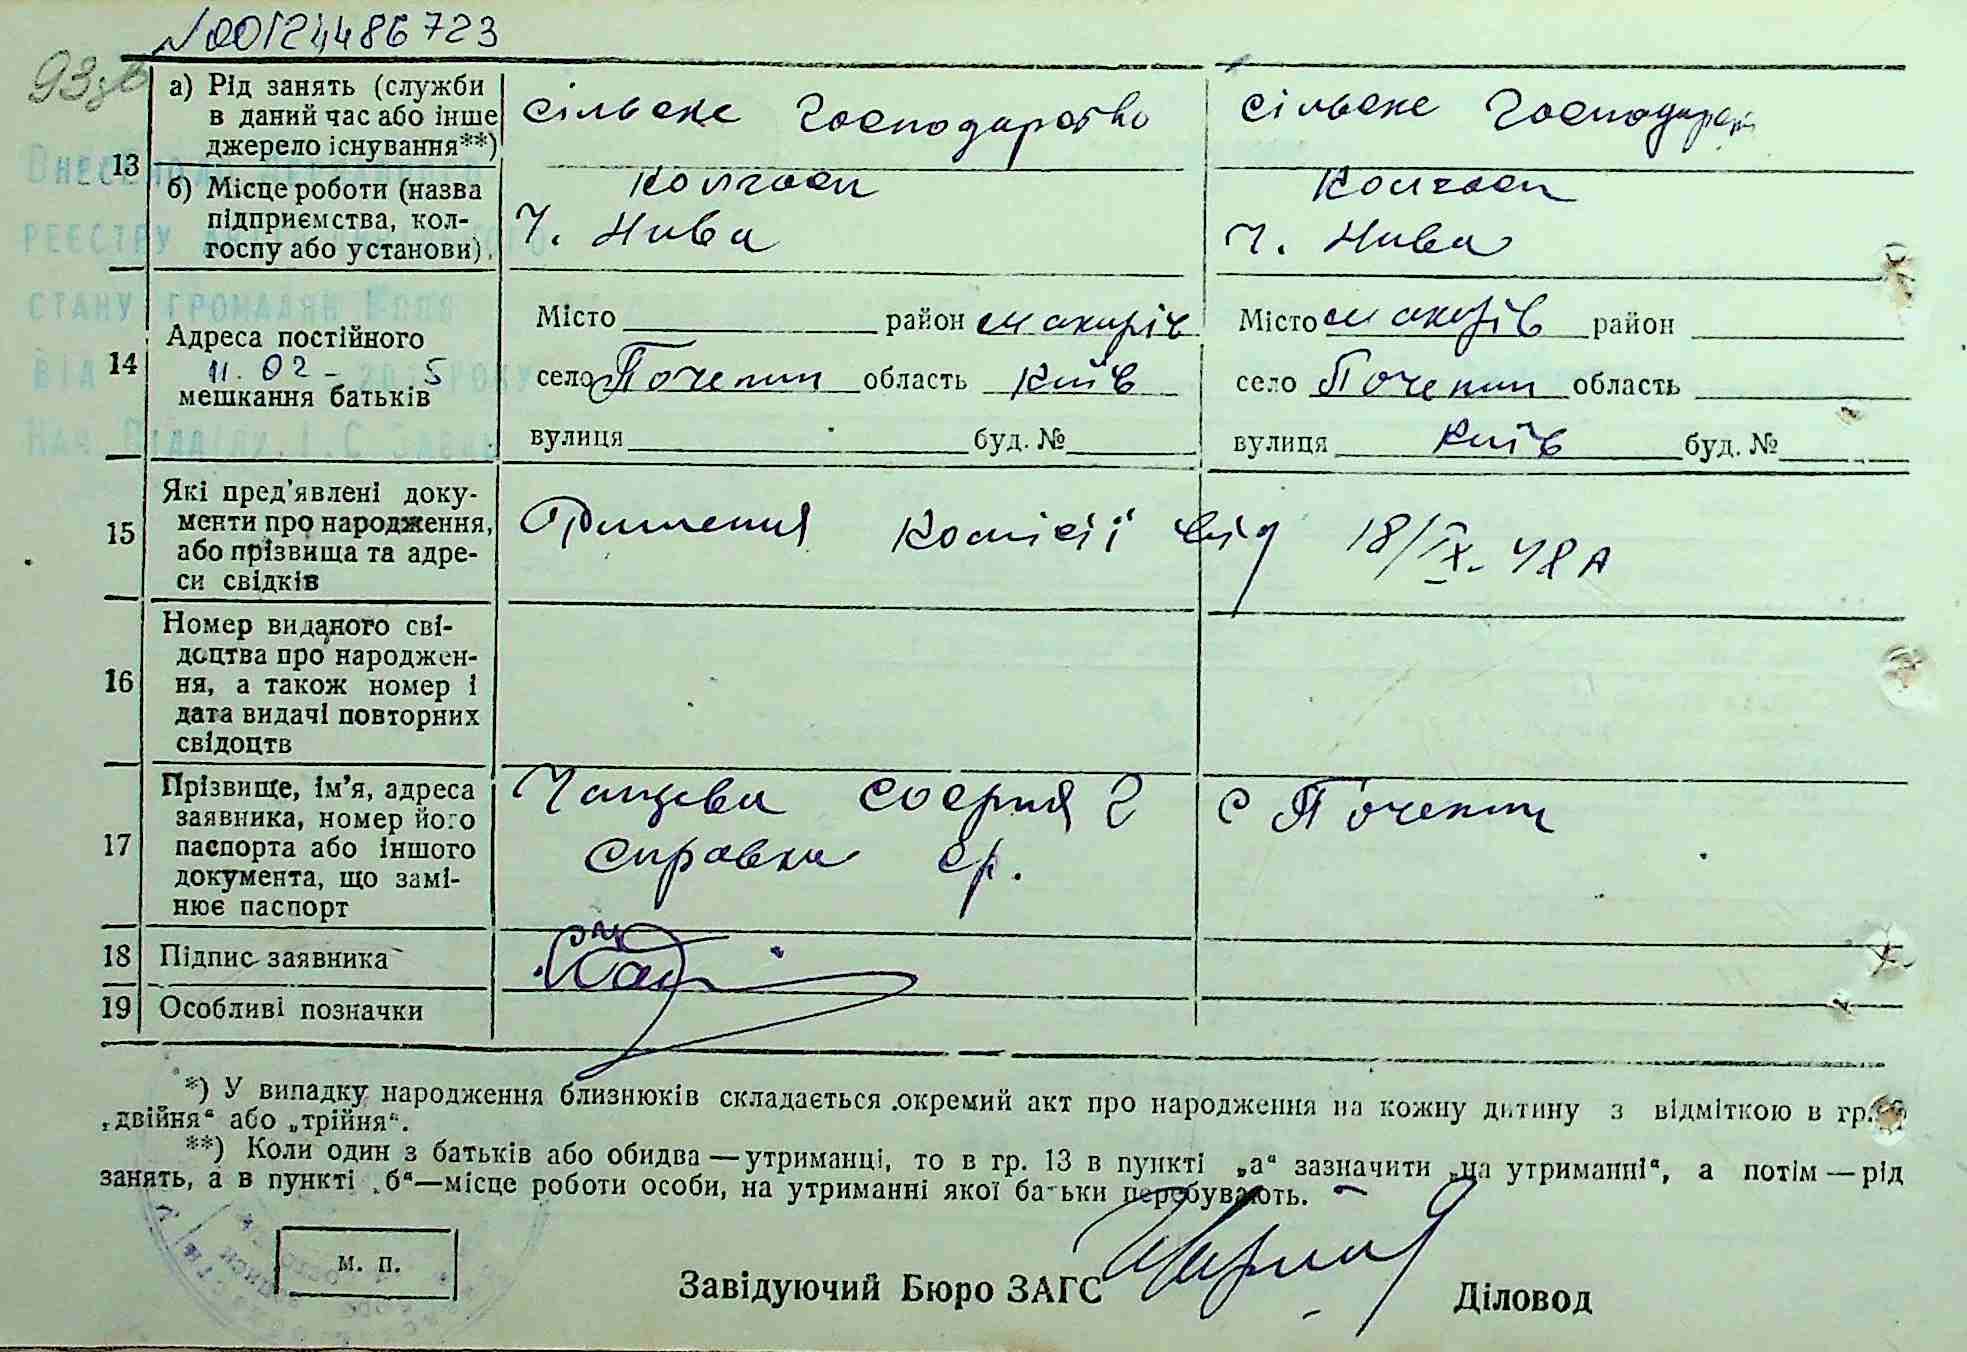 №00124486723
13
а) Рід занять (служби
в даний час або інше
джерело існування**)
сільске господарство
сільске господар
б) Місце роботи (назва
підприємства, кол-
госпу або установи).
колгосп
Ч. Нива
колгосп
Ч. Нива
ВНЕСЕНО ДО ДЕРЖАВНОГО
РЕЄСТРУ АКТІВ
СТАНУ ГРОМАДЯН
ВІД 11.02- 5 РОКУ
14
Адреса постійного
мешкання батьків
Місто район Макарів
село Почепин область Київ
вулиця буд. №
Місто Макарів район
село Почепин область
вулиця Київ буд. №
15
Які пред'явлені доку-
менти про народження,
або прізвища та адре-
си свідків
Рішення комісії від 18/IX. 48
16
Номер виданого сві-
доцтва про народжен-
ня, а також номер і
дата видачі повторних
свідоцтв
17
Прізвище, ім'я, адреса
заявника, номер його
паспорта або іншого
документа, що замі-
нює паспорт
София с Почепин
справка
18
Підпис заявника
19
Особливі позначки
*) У випадку народження близнюків складається окремий акт про народження на кожну дитину з відміткою в гр.
„двійня“ або „трійня“.
**) Коли один з батьків або обидва — утриманці, то в гр. 13 в пункті „а“ зазначити „на утриманні“, а потім — рід
занять, а в пункті „б“ — місце роботи особи, на утриманні якої батьки перебувають.
м. п.
Завідуючий Бюро ЗАГС
Діловод